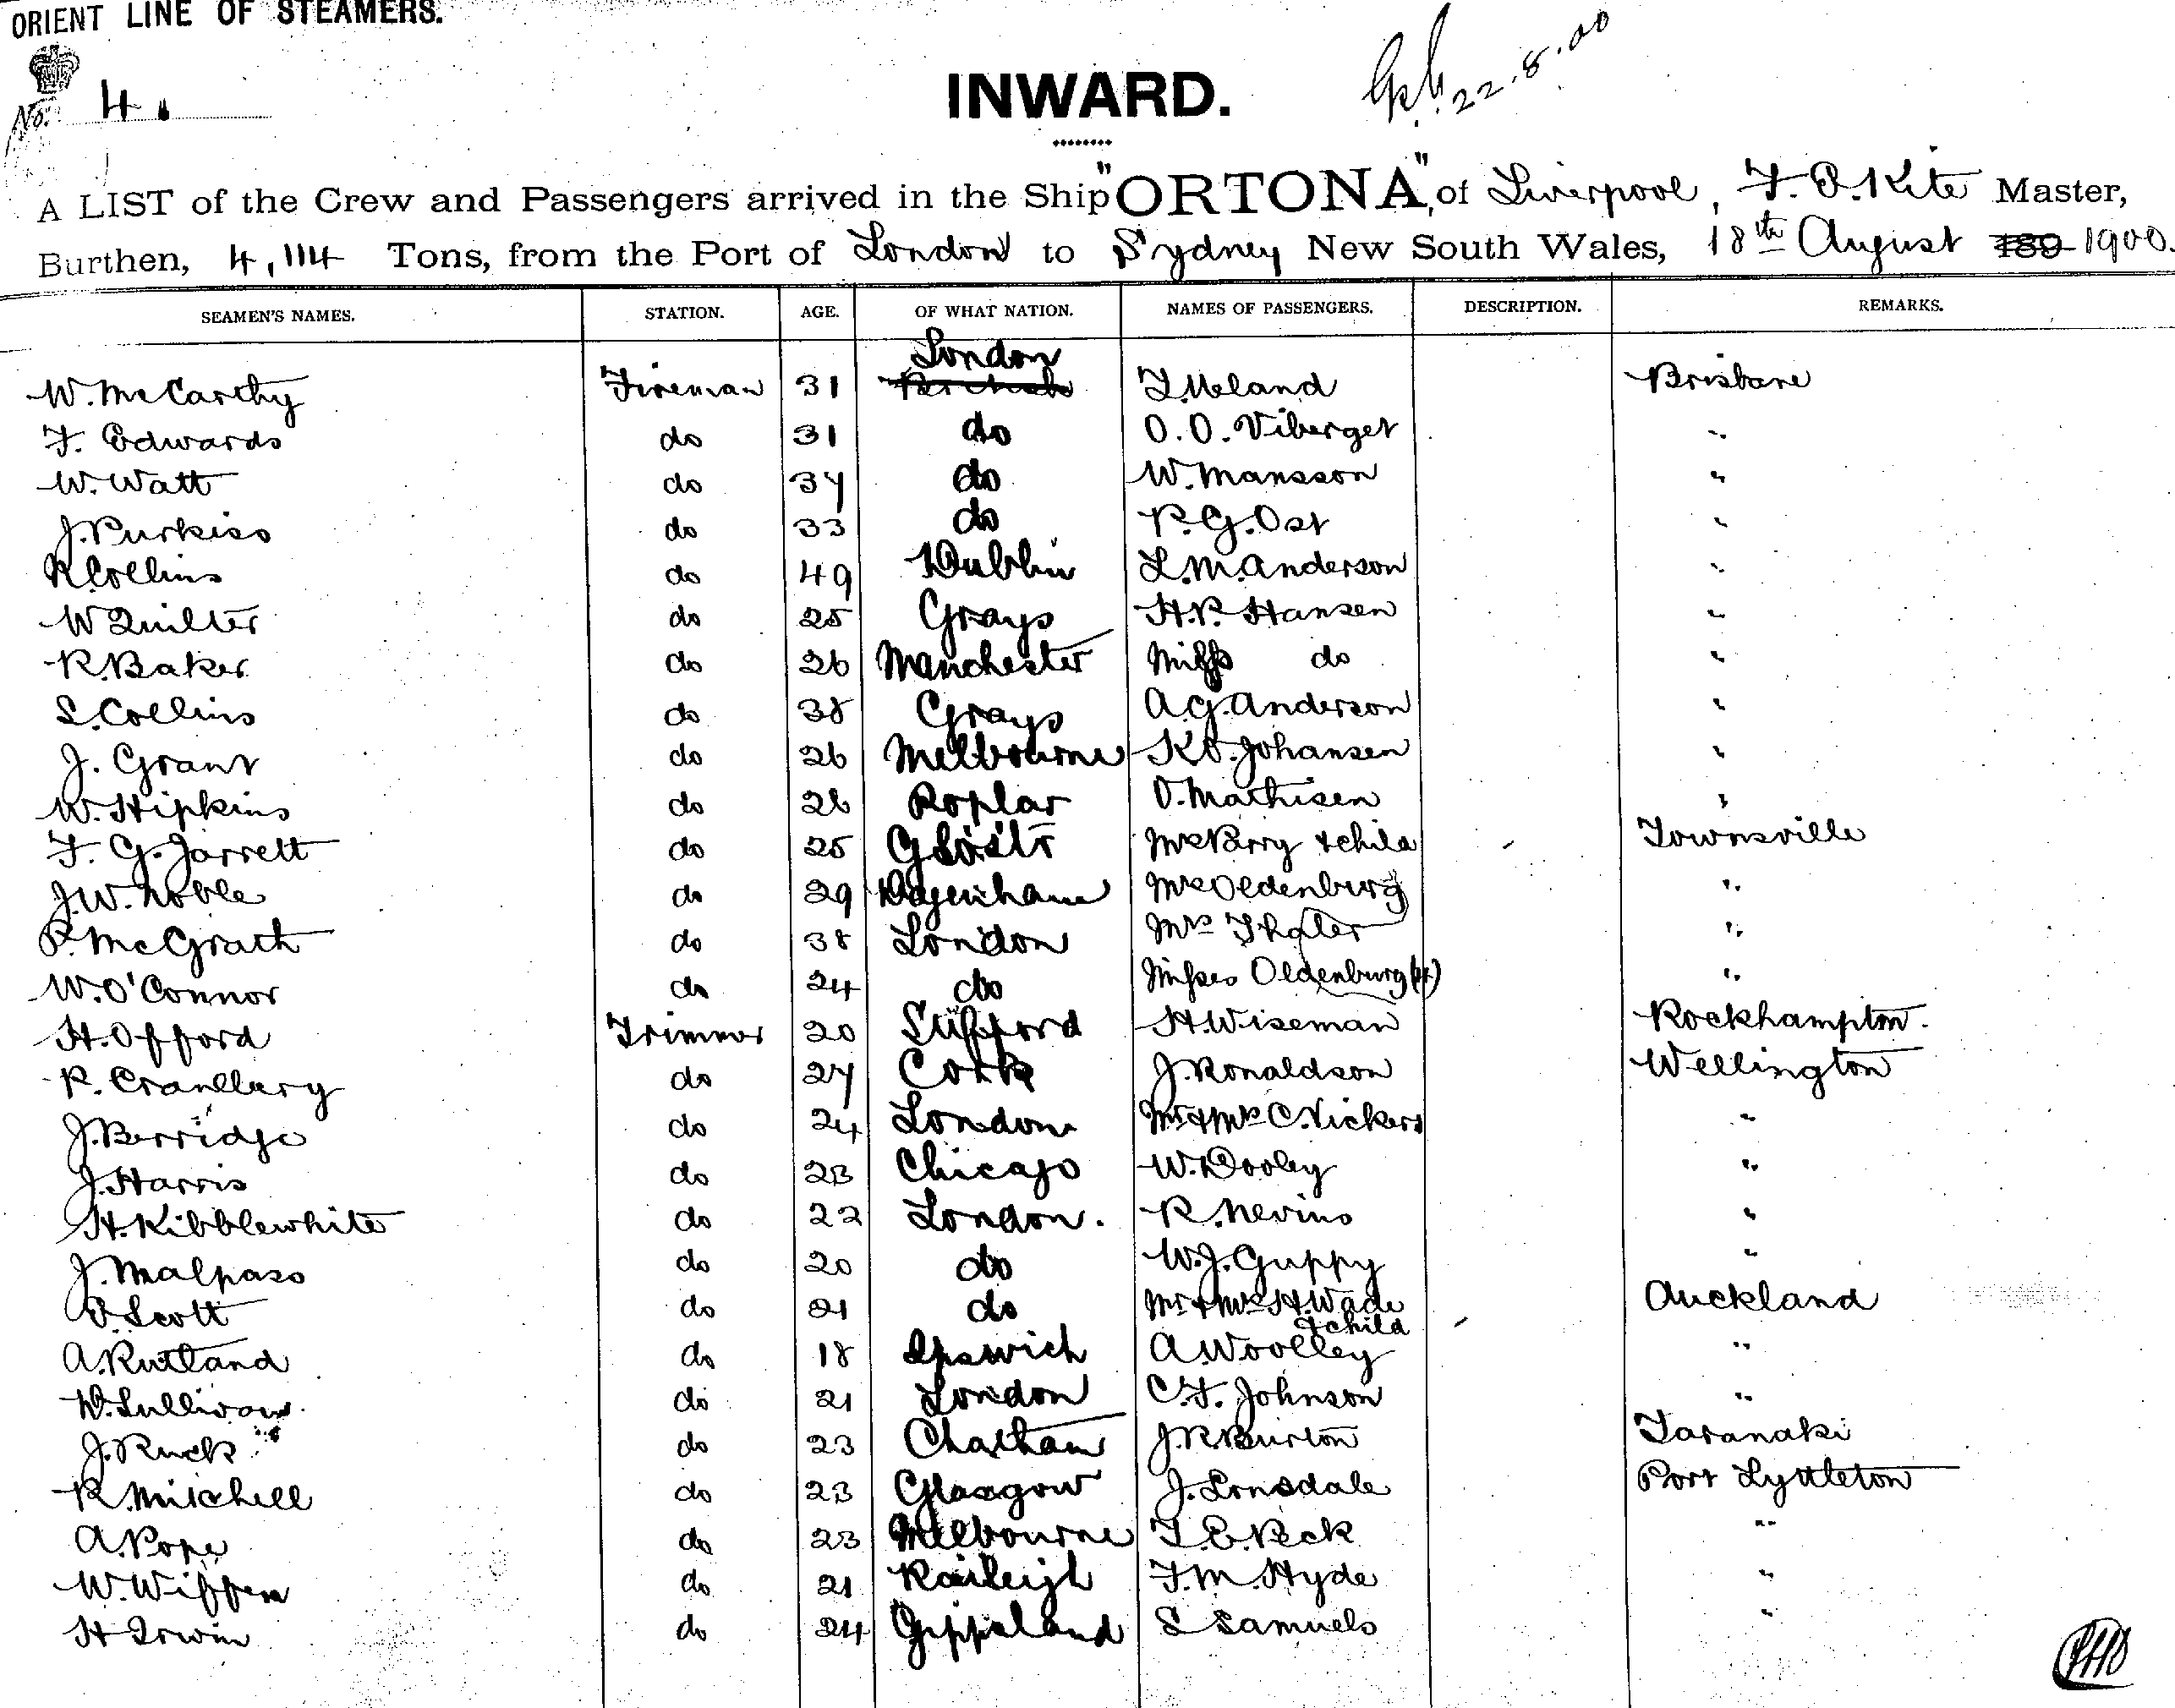 ORIENT LINE OF STEAMERS.
No. 4.
INWARD.
22.8.00
A LIST of the Crew and Passengers arrived in the Ship "ORTONA", of Liverpool, F. O. Kite Master,
Burthen, 4,114 Tons, from the Port of London to Sydney New South Wales, 18th August 189 1900.
SEAMEN'S NAMES. STATION. AGE. OF WHAT NATION. NAMES OF PASSENGERS. DESCRIPTION. REMARKS.
London
W. McCarthy Fireman 31 Brisbane
F. Edwards do 31 do O.O. Viberget "
W. Watt do 37 do W. Mansson "
J. Purkiss do 33 do P.G. Ost "
R. Collins do 49 Dublin L.M. Anderson "
W Quilter do 25 Grays H.P. Hansen "
R. Baker do 26 Manchester Miss do "
S. Collins do 38 Grays A.G. Anderson "
J. Grant do 26 Melbourne K.O. Johansen "
W. Hipkins do 26 Poplar O. Mathisen "
F. G. Jarrett do 25 Mrs Parry & child Townsville
J.W. Noble do 29 Dagenham Mrs Oldenburg "
P. McGrath do 38 London Mrs Thaler "
W. O'Connor do 24 do Misses Oldenburg "
H. Offord Trimmer 20 Stifford H. Wiseman Rockhampton.
P. Cranllery do 27 Cork J. Ronaldson Wellington
J. Berridge do 24 London Mr & Mrs C. Vickers "
J. Harris do 23 Chicago W. Dooley "
H. Kibblewhite do 22 London. R. Nevins "
J. Malpass do 20 do W.J. Guppy "
Scott do 21 do Mr & Mrs H. Wade Auckland
& child
A. Rutland do 18 Ipswich A. Woolley "
D. Sullivan do 21 London C.F. Johnson "
J. Ruck do 23 Chatham J.R. Burton Taranaki
R. Mitchell do 23 Glasgow J. Lonsdale Port Lyttleton
A. Pope do 23 Melbourne T.E. Peck "
W. Wiffen do 21 Raileigh F.M. Hyde "
H Irwin do 24 Gippsland S Samuels "